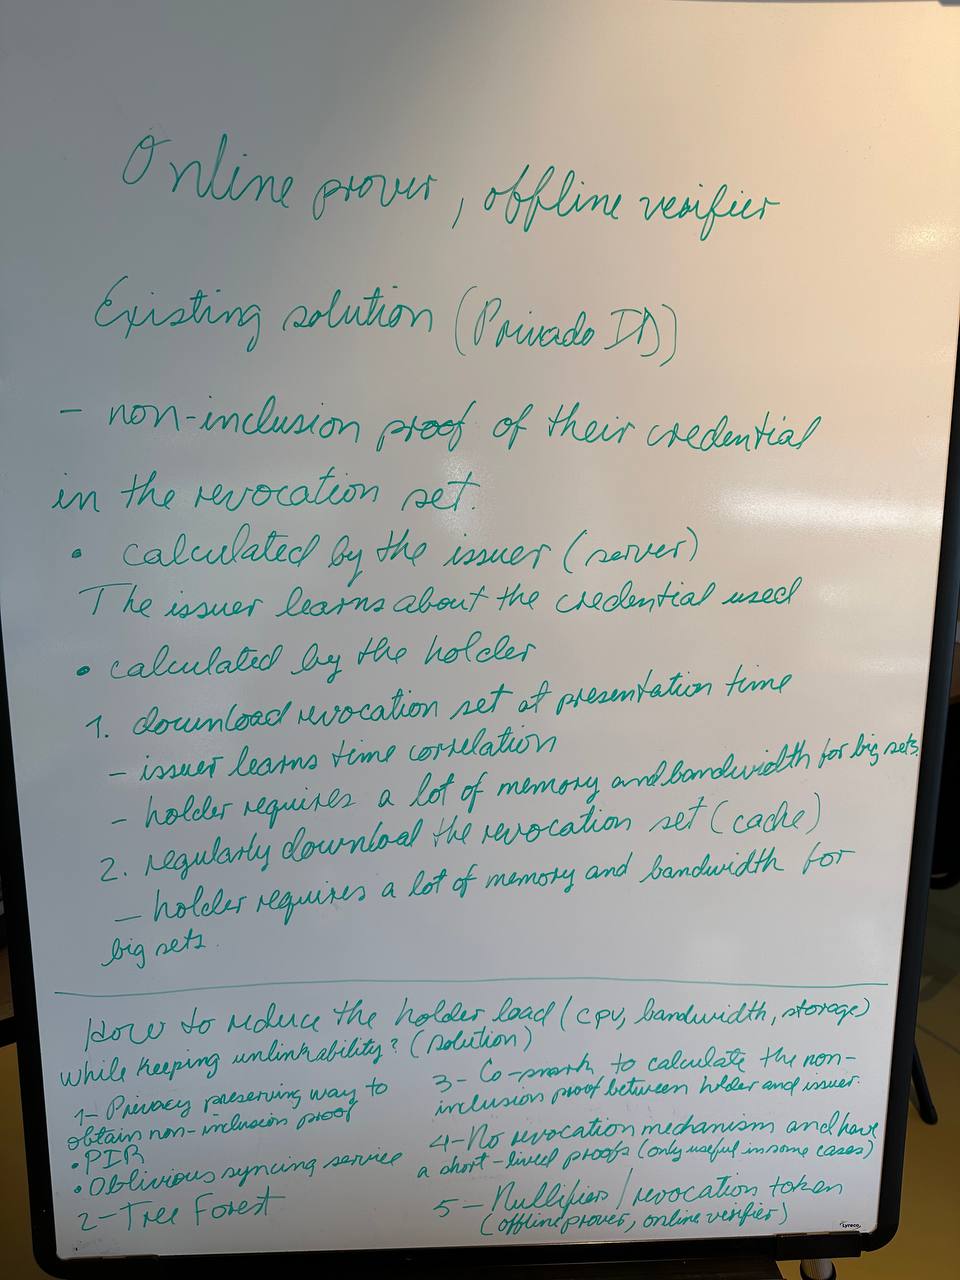 Online prover, offline verifier
Existing solution (Privado ID)
- non-inclusion proof of their credential
in the revocation set.
• calculated by the issuer (server)
The issuer learns about the credential used
• calculated by the holder
1. download revocation set at presentation time
- issuer learns time correlation
- holder requires a lot of memory and bandwidth for big sets.
2. regularly download the revocation set (cache)
- holder requires a lot of memory and bandwidth for
big sets.
How to reduce the holder load (CPU, bandwidth, storage)
while keeping unlinkability? (solution)
1- Privacy preserving way to
obtain non-inclusion proof
• PIR
• Oblivious syncing service
2- Tree Forest
3- Co-snark to calculate the non-
inclusion proof between holder and issuer.
4- No revocation mechanism and have
a short-lived proofs (only useful in some cases)
5- Nullifier / revocation token
(offline prover, online verifier)
Lyreco